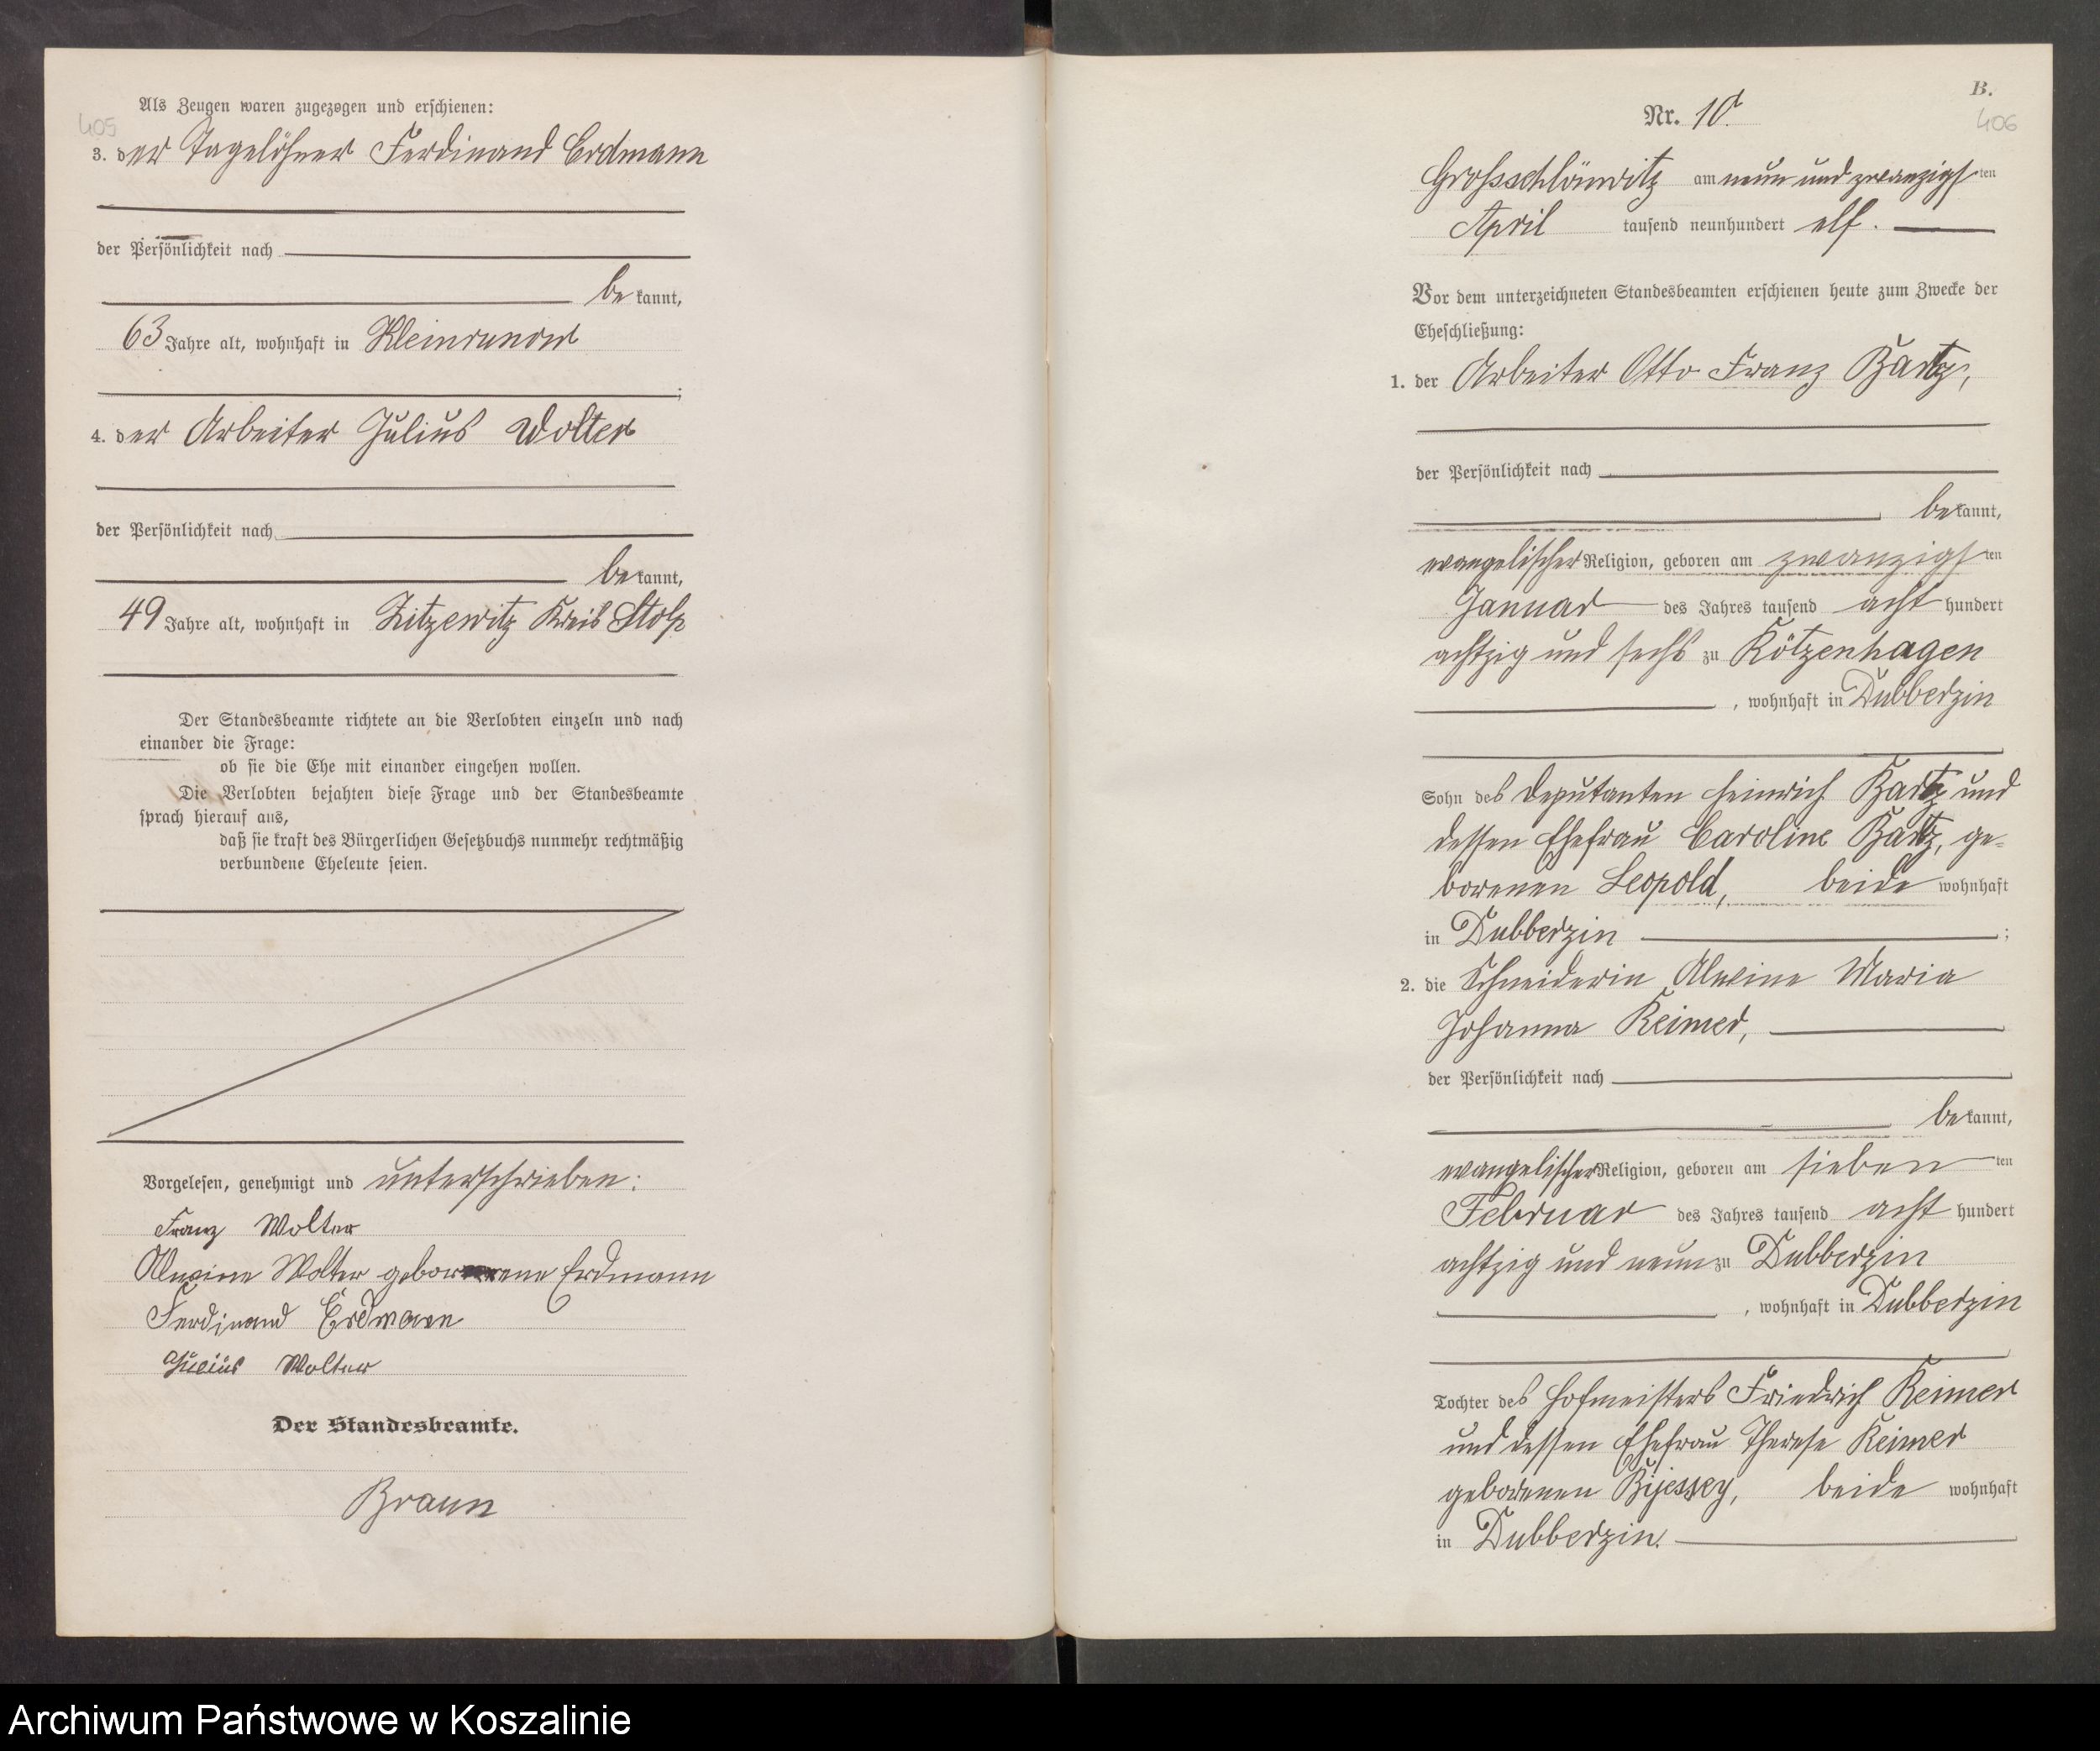 405
Als Zeugen waren zugezogen und erschienen:
3. der Tagelöhner Ferdinand Erdmann
der Persönlichkeit nach
bekannt,
63 Jahre alt, wohnhaft in Kleinrunow
;
4. der Arbeiter Julius Wolter
der Persönlichkeit nach
bekannt,
49 Jahre alt, wohnhaft in Zitzewitz Kreis Stolp
Der Standesbeamte richtete an die Verlobten einzeln und nach
einander die Frage:
ob sie die Ehe mit einander eingehen wollen.
Die Verlobten bejahten diese Frage und der Standesbeamte
sprach hierauf aus,
daß sie kraft des Bürgerlichen Gesetzbuchs nunmehr rechtmäßig
verbundene Eheleute seien.
Vorgelesen, genehmigt und unterschrieben:
Franz Wolter
Alwine Wolter geborene Erdmann
Ferdinand Erdmann
Julius Wolter
Der Standesbeamte.
Braun
B.
406
Nr. 10.
Grossschlönwitz am neun und zwanzigsten
April tausend neunhundert elf.
Vor dem unterzeichneten Standesbeamten erschienen heute zum Zwecke der
Eheschließung:
1. der Arbeiter Otto Franz Bartz,
der Persönlichkeit nach
bekannt,
evangelischer Religion, geboren am zwanzigsten
Januar des Jahres tausend acht hundert
achtzig und sechs zu Kötzenhagen
, wohnhaft in Dubberzin
Sohn des Deputanten Heinrich Bartz und
dessen Ehefrau Caroline Bartz, ge=
borenen Leopold, beide wohnhaft
in Dubberzin ;
2. die Schneiderin Alwine Maria
Johanna Reimer,
der Persönlichkeit nach
bekannt,
evangelischer Religion, geboren am siebenten
Februar des Jahres tausend acht hundert
achtzig und neun zu Dubberzin
, wohnhaft in Dubberzin
Tochter des Hofmeisters Friedrich Reimer
und dessen Ehefrau Therese Reimer
geborenen beide wohnhaft
in Dubberzin.
Archiwum Państwowe w Koszalinie